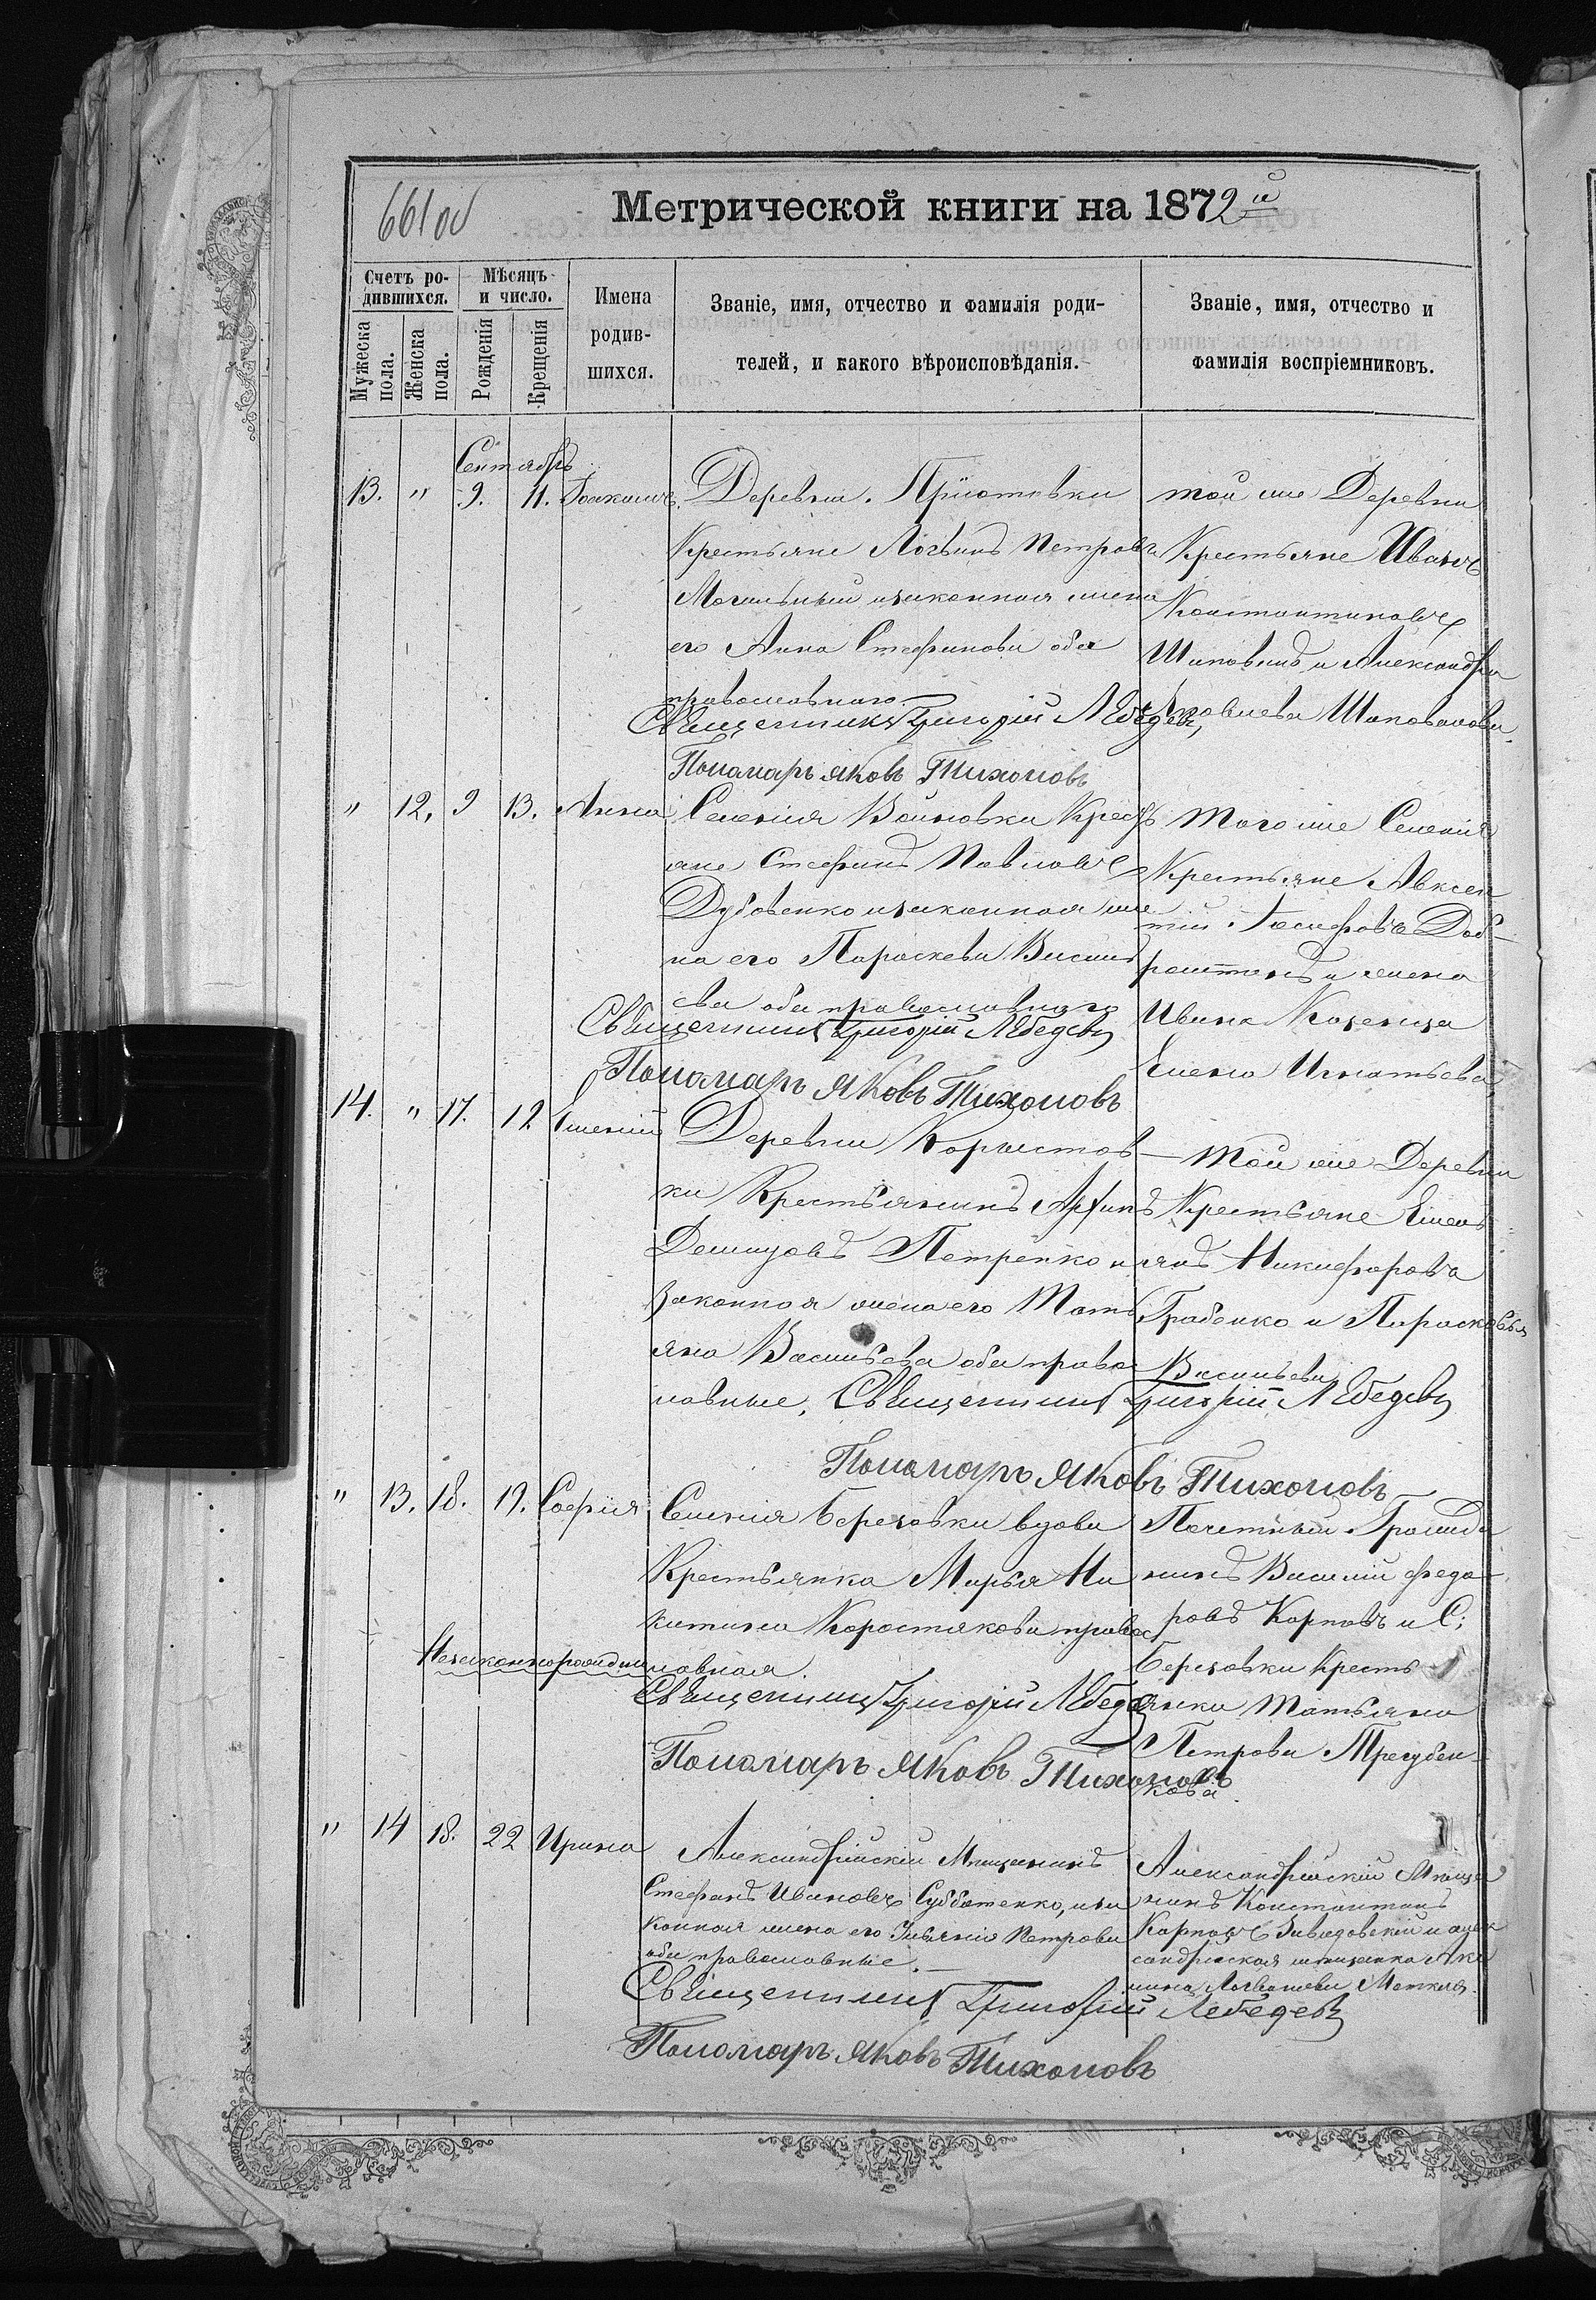 661об
Метрической книги на 1872й
Счетъ ро-
дившихся.
Мѣсяцъ
и число.
Мужеска
пола.
Женска
пола.
Рожденія
Крещенія
Имена
родив-
шихся.
Званіе, имя, отчество и фамилія роди-
телей, и какого вѣроисповѣданія.
Званіе, имя, отчество и
фамилія воспріемниковъ.
Сентябрь
13. " 9. 11. Іоакимъ.
Деревни
Крестьяне Логвинъ Петровъ
Могильный и законная жена
его Анна Стефанова оба
православнаго.
Священникъ Григорій Лебедевъ,
Пономарь Яковъ Тихоновъ
той же Деревни
Крестьяне Иванъ
Константиновъ
и Александра
Шаповалова.
" 12, 9 13. Анна
Селенія Войновки Кресть
яне Стефанъ Павловъ
Дубовенко и законная же
на его Параскева Василь
ева оба православнаго
Священникъ Григорій Лебедевъ
Пономарь Яковъ Тихоновъ
Того же Селенія
Крестьяне Авксен
тій Іосифовъ
и жена
Ивана
Елена Игнатьева,
14. " 17. 19 Евгеній
Деревни Користов-
ки Крестьянинъ
Петренко и
законная жена его Тать
яна Васильева оба право
лавные, Священникъ Григорій Лебедевъ
Пономарь Яковъ Тихоновъ
Той же Деревни
Крестьяне Емель
янъ Никифоровъ
Грабенко и Парасковья
Васильева
" 13. 18. 19. Софія
Незаконнорожден
Селенія Березовки вдова
Крестьянка Марья Ни
китина Коростякова правос
лавная.
Священникъ Григорій Лебедевъ
Пономарь Яковъ Тихоновъ
Почетный Гражда
нинъ Василій Федо-
ровъ Карповъ и С:
Березовки Кресть
янка Татьяна
Петрова Трегубен-
кова.
" 14 18. 22 Ирина
Александрійскій Мѣщанинъ
Стефанъ Ивановъ Субботенко, и за
конная жена его Петрова
оба православные.
Священникъ Григорій Лебедевъ
Пономарь Яковъ Тихоновъ
Александрійскій Мѣща
нинъ Константинъ
Карповъ Завадовскій и алек
сандрійская мѣщанка Аки
лина